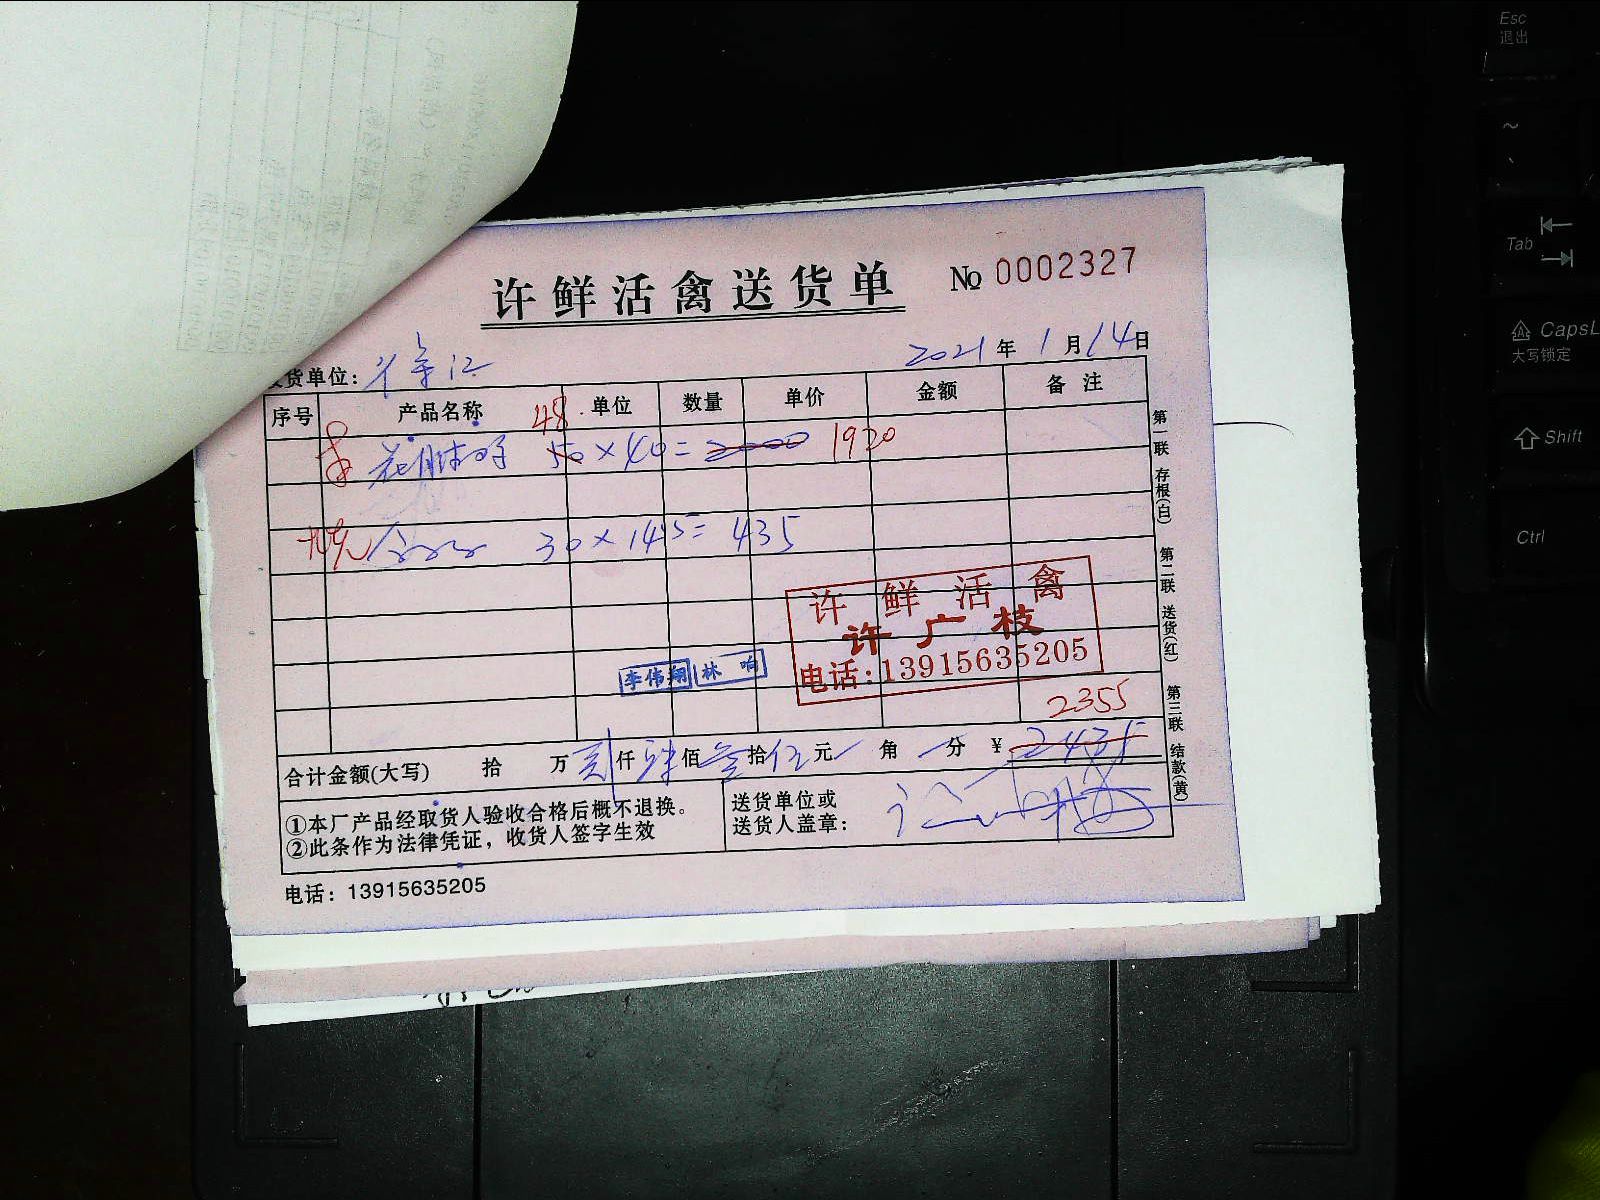 许鲜活禽送货单 № 0002327
货单位:
2021年1月14日
序号 产品名称 单位 数量 单价 金额 备注
48
50×40=2000 1920
30×14.5=435
许鲜活禽
许广枝
电话:13915635205
李伟翔 林响
2355
合计金额(大写) 拾 万 贰仟 肆佰 叁拾 伍元 角 分 ¥ 2435
①本厂产品经取货人验收合格后概不退换。
②此条作为法律凭证，收货人签字生效
送货单位或
送货人盖章:
电话: 13915635205
第一联 存根(白)
第二联 送货(红)
第三联 结款(黄)
Esc
退出
~
Tab
CapsL
大写锁定
Shift
Ctrl